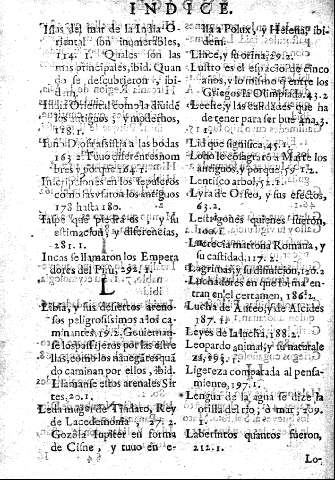 INDICE.
Islas del mar de la India O-
riental son inumerables,
114. 1. Quales son las
mas principales, ibid. Quan
do se descubrieron, ibi-
dem.
India Oriental como la diuidē
los antiguos, y modernos,
118. 1.
assistia a las bodas
163. 2. Tuuo diferentes nom
bres, y porque 164. 1.
Inscripciones en los sepulcros
como las vsarõ los antiguos
178. hasta 180.
Iaspe que piedra es, y su
estimacion, y diferencias,
281. 1.
Incas se llamaron los Empera
dores del Pirù, 292. 1.
L
Libia, y sus desiertos areno-
sos peligrosissimos a los ca
minantes, 19. 2. Gouiernan-
se los passajeros por las estre
llas, como los nauegātes quã
do caminan por ellos, ibid.
Llamanse estos arenales Sir
tes, 20. 1.
Leda muger de Tindaro, Rey
de Lacedemonia, 27. 2.
Gozòla Iupiter en forma
de Cisne, y tuuo en e-
lla a Polux, y Helena, ibi-
dem.
Lince, y su orina, 29. 2.
Lustro es el espacio de cinco
años, y lo mismo q̃ entre los
Griegos la Olimpiada. 43. 2
Leche, y las calidades que ha
de tener para ser buena, 3.
1.
Lid que significa, 45. 1.
Lobo le cōsagrarõ a Marte los
antiguos, y porque, 59. 1. 2.
Lentisco arbol, 51. 1.
Lyra de Orfeo, y sus efectos,
63. 2.
Lestrigones quienes fueron,
100. 1.
Lucrecia matrona Romana, y
su castidad, 117. 2.
Lagrimas, y su difinicion, 130. 2
Luchadores en que forma en-
tran en el certamen, 186. 2.
Lucha de Anteo, y de Alcides
187. 1.
Leyes de la lucha, 188. 2.
Leopardo animal, y su naturale
za, 195. 1.
Ligereza comparada al pensa-
miento, 197. 1.
Lengua de la agua se dize la
orilla del rio, ò mar, 209.
1.
Laberintos quantos fueron,
212. 1.
Lo-